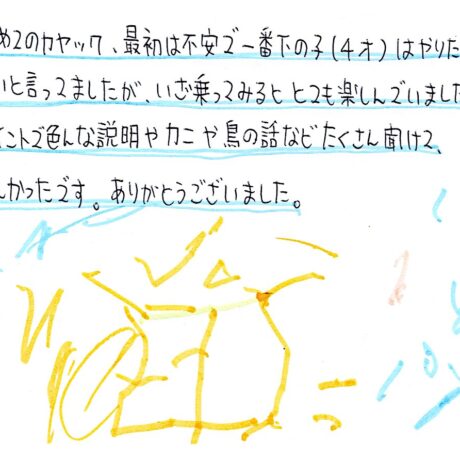 め2のカヤック、最初は不安で一番下の子(4才)はやりた
いと言ってましたが、いざ乗ってみるととても楽しんでいました
イントで色んな説明やカニや鳥の話などたくさん聞けて、
しかったです。ありがとうございました。